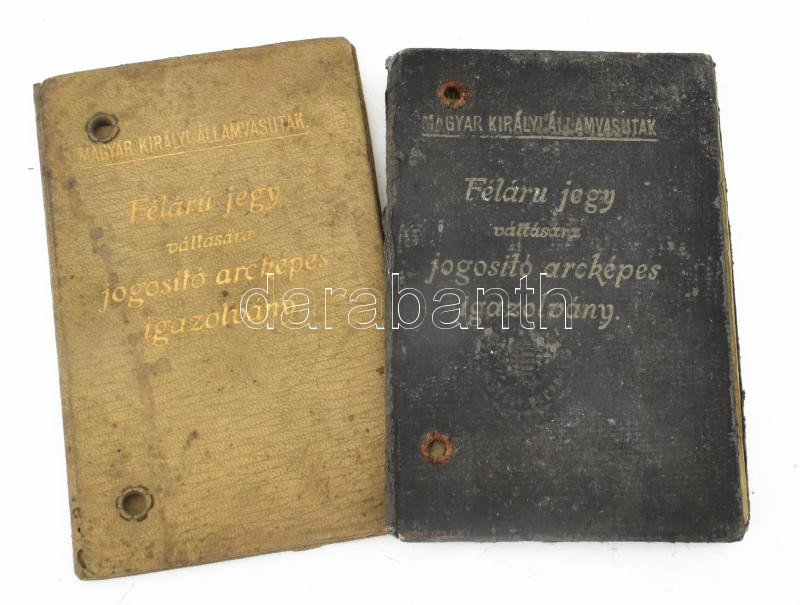 MAGYAR KIRÁLYI ÁLLAMVASUTAK.
Félárú jegy
váltására
jogosító arcképes
igazolvány.
MAGYAR KIRÁLYI ÁLLAMVASUTAK
Féláru jegy
váltására
jogosító arcképes
igazolvány.
darabanth